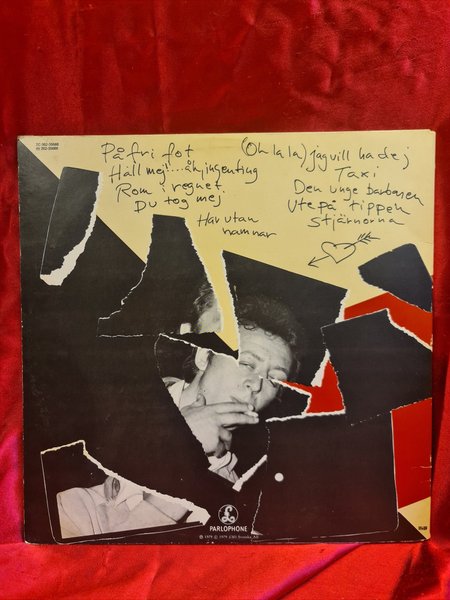 På fri fot
Håll mej... åh, ingenting
Rom i regnet
Du tog mej
Hav utan
namnar
(Oh la la) jag vill ha dej
Taxi
Den unge barbaren
Ute på tippen
Stjärnorna
PARLOPHONE
℗ 1979 © 1979 EMI Svenska AB